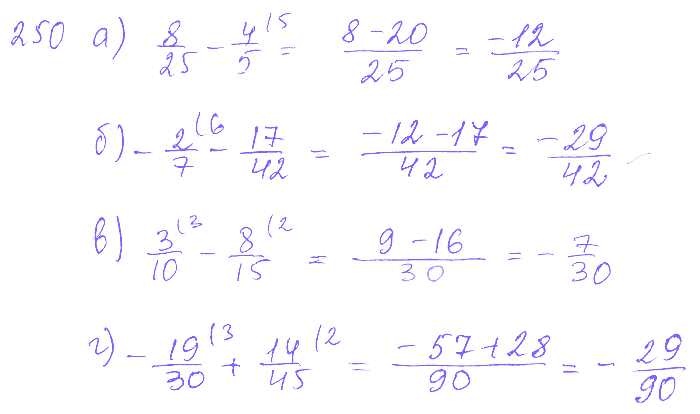 250 а) 8/25 - 4/5 (5 = (8 - 20)/25 = -12/25
б) - 2/7 (6 - 17/42 = (-12 - 17)/42 = -29/42
в) 3/10 (3 - 8/15 (2 = (9 - 16)/30 = - 7/30
г) - 19/30 (3 + 14/45 (2 = (-57 + 28)/90 = - 29/90